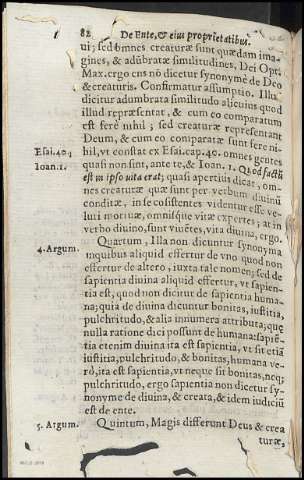 82 De Ente, & eius proprietatibus.
ui; sed omnes creaturæ sunt quædam ima-
gines, & adũbratæ similitudines, Dei Opti
Max. ergo ens nõ dicetur synonymè de Deo
& creaturis. Confirmatur assumptio. Illud
dicitur adumbrata similitudo alicuius quod
illud repræsentat, & cum eo comparatum
est ferè nihil; sed creaturæ repræsentant
Deum, & cum eo comparatæ sunt fere ni-
Esai. 40.
hil, vt constat ex Esai. cap. 40. omnes gentes
Ioan. 1.
quasi non sint, ante te, & Ioan. 1. Quod factũ
est in ipso vita erat; quasi apertiùs dicat, om-
nes creaturæ quæ sunt per verbum diuinũ
conditæ, in se cõsistentes videntur esse ve-
luti mortuæ, omnisque vitæ expertes; at in
verbo diuino, sunt viuẽtes, vita diuina, ergo.
4. Argum.
Quartum, Illa non dicuntur synonyma
in quibus aliquid effertur de vno quod non
effertur de altero, iuxta tale nomen; sed de
sapientia diuina aliquid effertur, vt sapien-
tia est, quod non dicitur de sapientia huma-
na; quia de diuina dicuntur bonitas, iustitia,
pulchritudo, & alia innumera attributa; quæ
nulla ratione dici possunt de humana: sapiẽ-
tia etenim diuina ita est sapientia, vt sit etiã
iustitia, pulchritudo, & bonitas, humana ve-
rò, ita est sapientia, vt neque sit bonitas, neq;
pulchritudo, ergo sapientia non dicetur sy-
nonyme de diuina, & creata, & idem iudiciũ
est de ente.
5. Argum.
Quintum, Magis differunt Deus & crea
turæ,